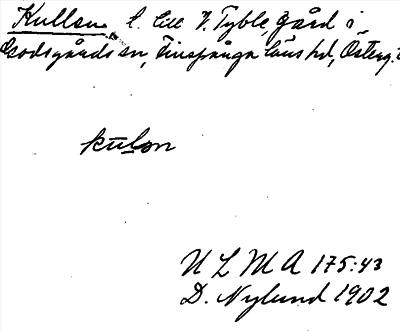 Kullen, l. till V. Tyble, gård i
Godegårds sn, Finspånga läns hd, Österg.
kulon
ULMA 175:43
D. Nylund 1902